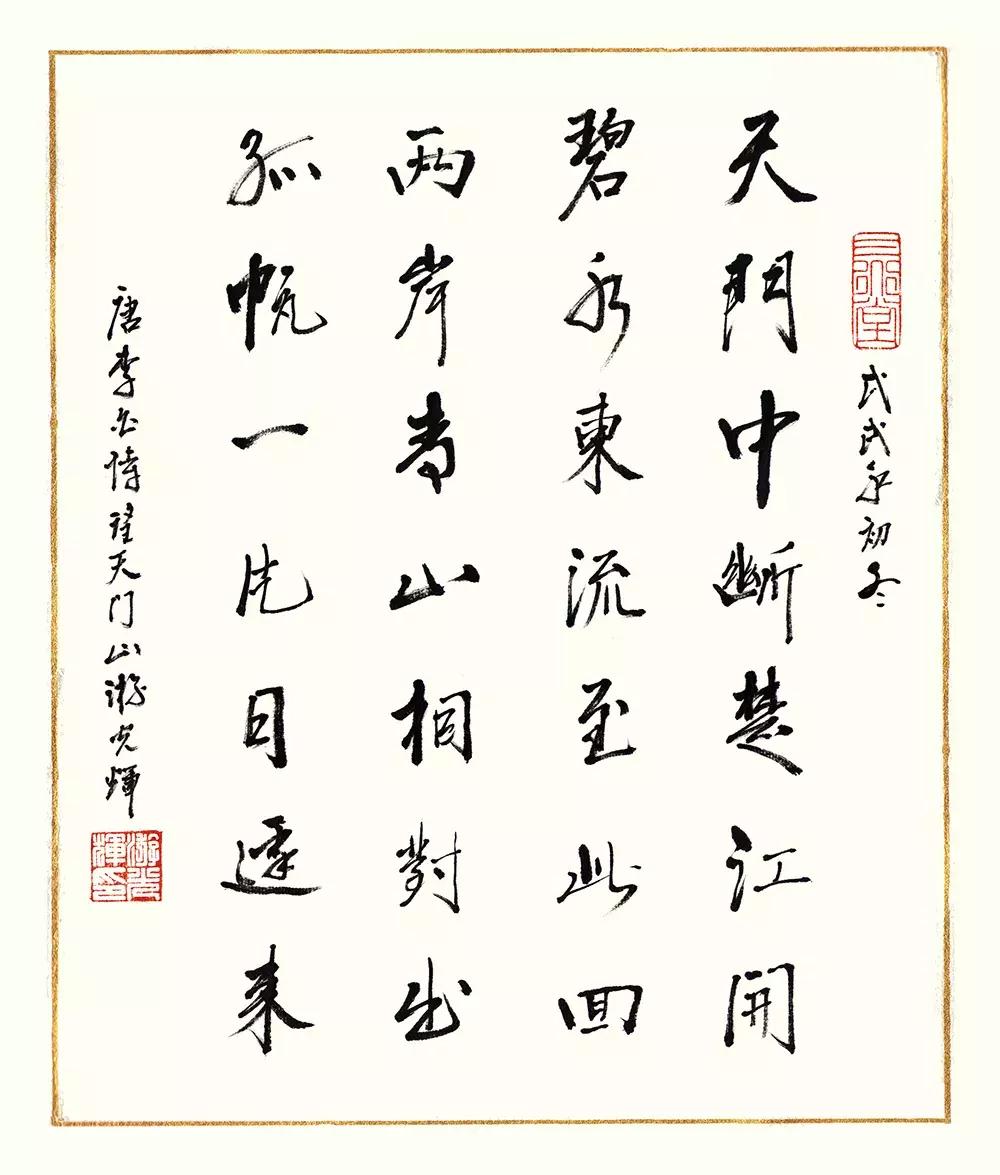 戊戌年初冬
天門中斷楚江開
碧水東流至此回
兩岸青山相對出
孤帆一片日邊來
唐李白詩望天门山游光輝
游光輝印